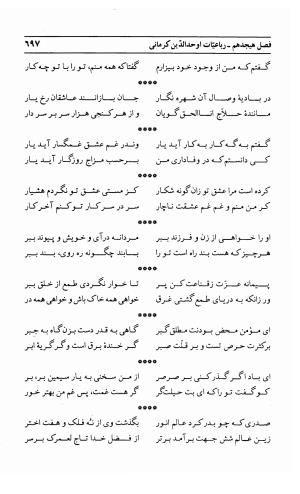 فصل هیجدهم ـ رباعیّات اوحدالدّین کرمانی ۶۹۷
گفتم که من از وجود خود بیزارم گفتا که همه منم، تو را با تو چه کار
****
در بادیهٔ وصال آن شهره نگار جان بازانند عاشقان رخ یار
مانندهٔ حلاّج اناالحق گویان و از هر کنجی هزار سر بر سر دار
****
گفتم به گه کار به کار آید یار وندر غم عشق غمگسار آید یار
کی دانستم که در وفاداری من برحسب مزاج روزگار آید یار
****
کرده است مرا عشق تو زان گونه شکار کز مستی عشق تو نگردم هشیار
کز من منم و غم غم عشقت ناچار سر در سر کار تو کنم آخر کار
****
او را خواهی از زن و فرزند ببر مردانه درآی و خویش و پیوند ببر
هرچیز که هست بند راه است تو را بابند چگونه ره روی، بند ببر
****
پیمانه عزّت ز قناعت کن پر تا خوار نگردی طمع از خلق ببر
ور زانکه به دریای طمع گشتی غرق خواهی همه خاک باش و خواهی همه در
****
ای مؤمن محض بودنت مطلق گبر گاهی به قدر دست بزن گاه به جبر
برکثرت حرص تست و بر قلّت صبر گر خندهٔ برق است و گر گریهٔ ابر
****
ای باد اگر گذر کنی بر صرصر از من سخنی به یار سیمین بر، بر
کو گفت تو را که ای بت حیلت‌گر گر هست غمت، پس غم من بهتر خور
****
صدری که چو بدر کرد عالم انور بگذشت وی از نُه فلک و هفت اختر
زین عالم شش جهت برآمد برتر از فضل خدا تاج لعمرک برسر